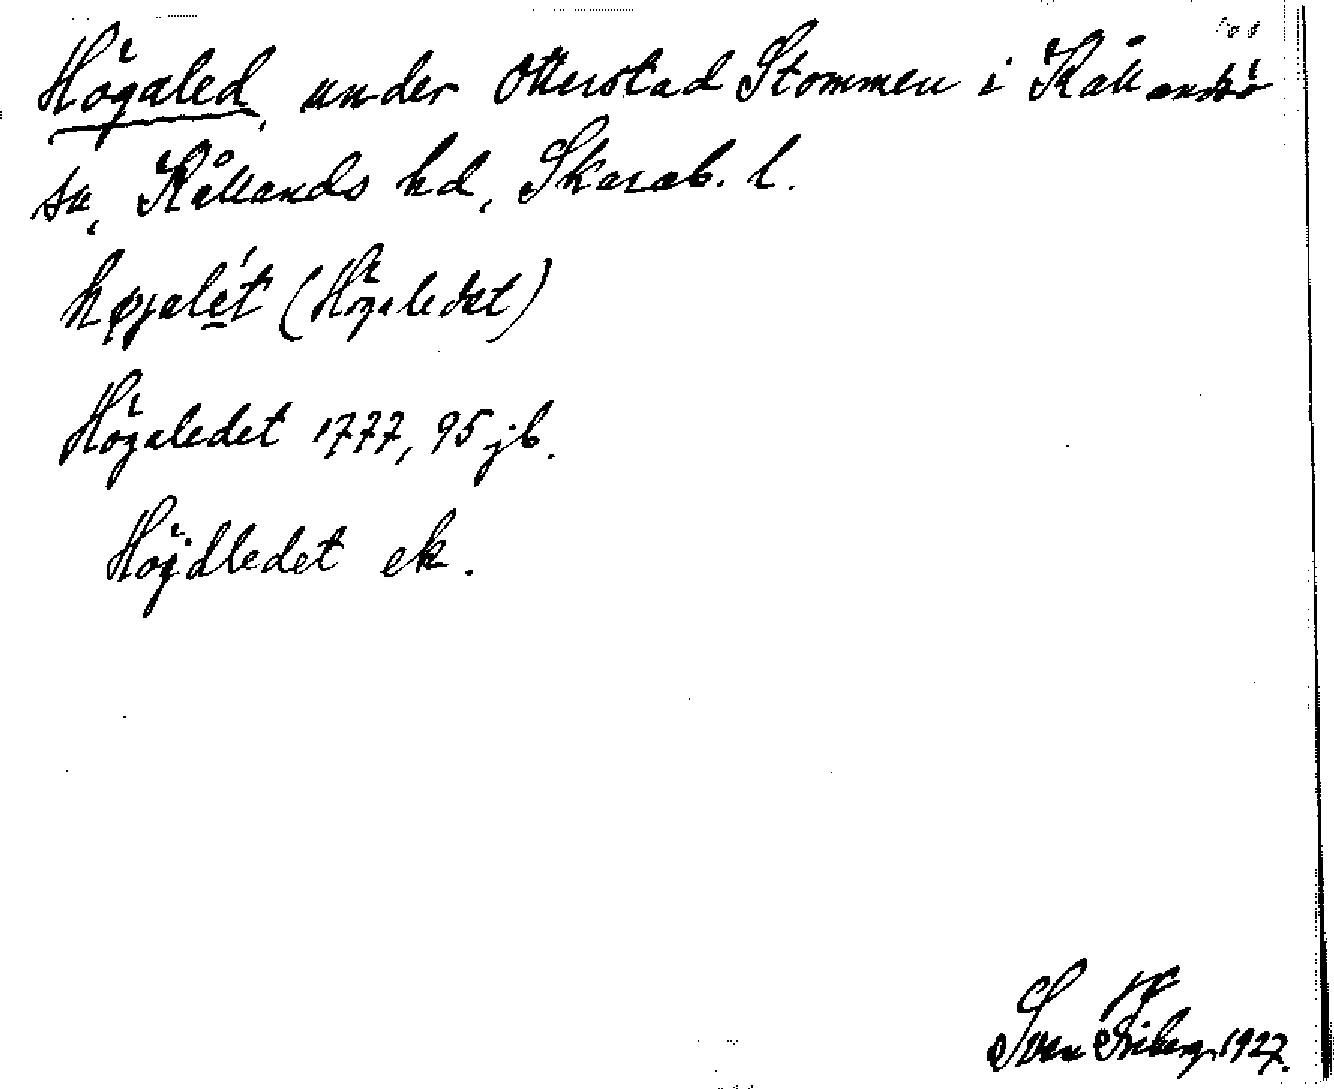 Högaled, under Otterstad Stommen i Kållandsö
sn, Kållands hd, Skarab. l.
høgalét (Högaledet)
Högaledet 1777, 95 jb.
Höjdledet ek.
Sven Friberg 1927.